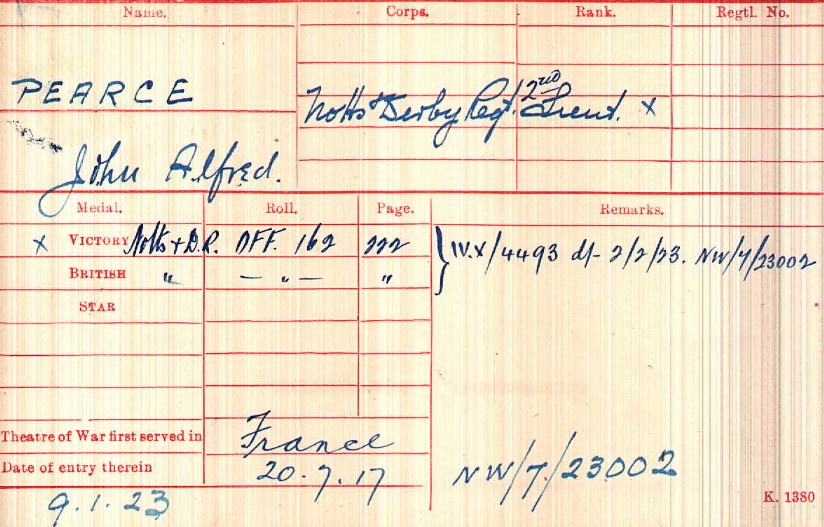 Name. Corps. Rank. Regtl. No.
PEARCE Notts & Derby Regt. 2nd Lieut. x
John Alfred.
Medal. Roll. Page. Remarks.
x VICTORY Notts + D.R. OFF. 162 222 } IV.X/4493 d/- 2/2/23. NW/7/23002
BRITISH " — " — "
STAR
Theatre of War first served in France
Date of entry therein 20.7.17 NW/7/23002
9.1.23 K. 1380